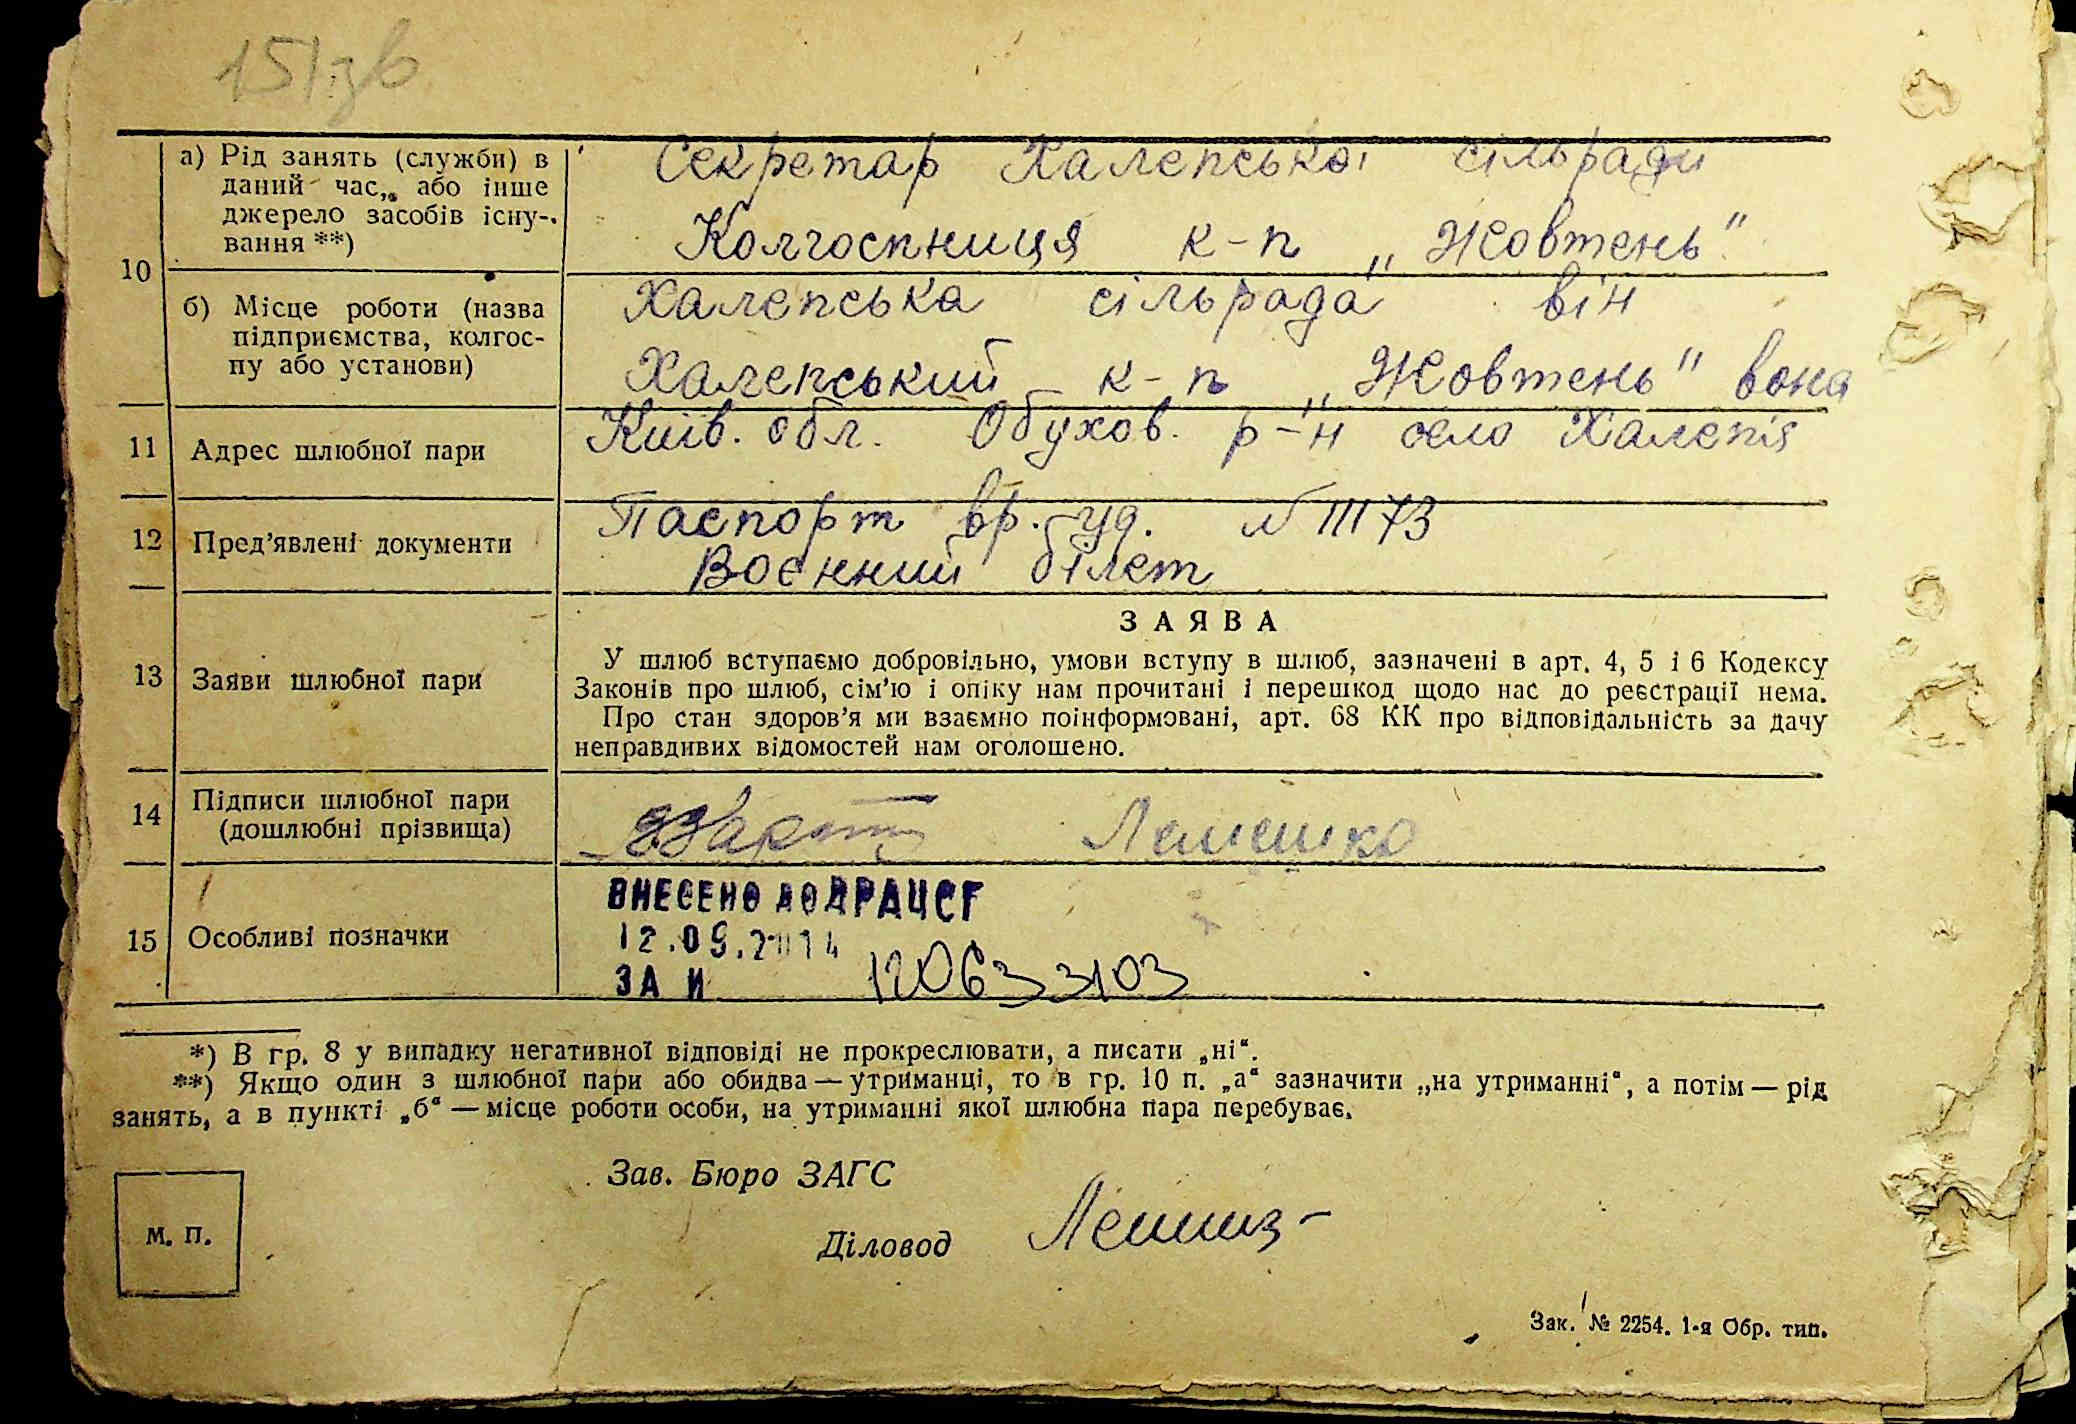 151зв
10
а) Рід занять (служби) в
даний час, або інше
джерело засобів існу-
вання **)
Секретар Халепської сільради
Колгоспниця к-п „Жовтень"
б) Місце роботи (назва
підприємства, колгос-
пу або установи)
Халепська сільрада він
Халепський к-п „Жовтень" вона
11
Адрес шлюбної пари
Київ. обл. Обухов. р-н село Халепія
12
Пред'явлені документи
Паспорт вр. уд. №
Воєнний білет
13
Заяви шлюбної пари
ЗАЯВА
У шлюб вступаємо добровільно, умови вступу в шлюб, зазначені в арт. 4, 5 і 6 Кодексу
Законів про шлюб, сім'ю і опіку нам прочитані і перешкод щодо нас до реєстрації нема.
Про стан здоров'я ми взаємно поінформовані, арт. 68 КК про відповідальність за дачу
неправдивих відомостей нам оголошено.
14
Підписи шлюбної пари
(дошлюбні прізвища)
Лемешко
15
Особливі позначки
ВНЕСЕНО ДО ДРАЦСГ
12.09.2014
ЗА № 120633103
*) В гр. 8 у випадку негативної відповіді не прокреслювати, а писати „ні".
**) Якщо один з шлюбної пари або обидва — утриманці, то в гр. 10 п. „а" зазначити „на утриманні", а потім — рід
занять, а в пункті „б" — місце роботи особи, на утриманні якої шлюбна пара перебуває.
М. П.
Зав. Бюро ЗАГС
Діловод
Зак. № 2254. 1-я Обр. тип.